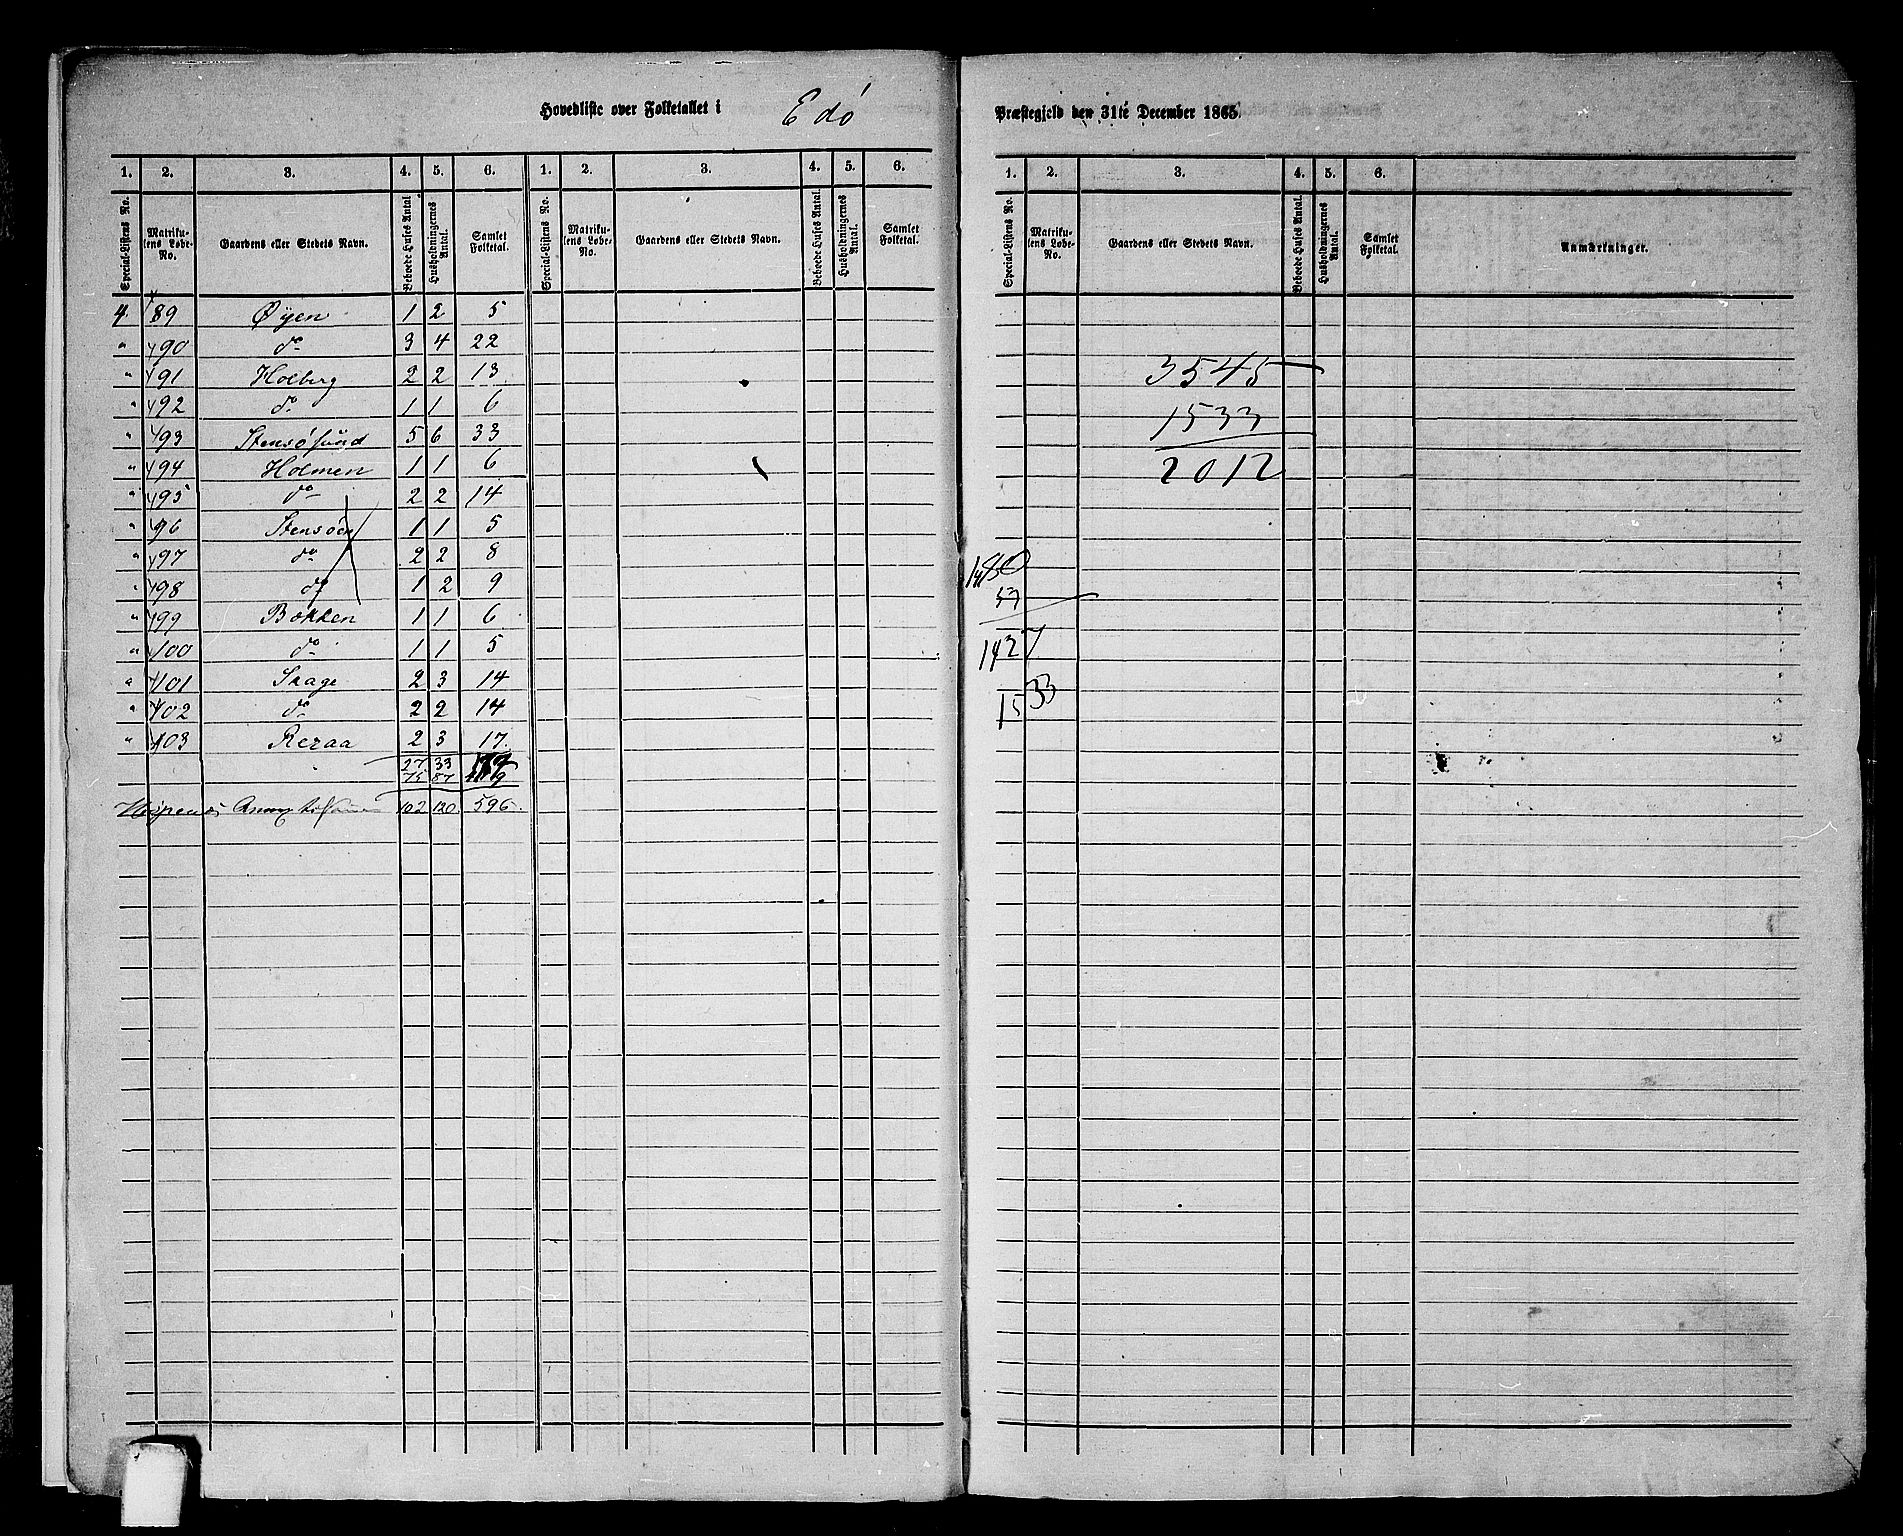 Hovedliste over Folketallet i Edø Præstegjeld den 31te December 1865.
1. 2. 3. 4. 5. 6. 1. 2. 3. 4. 5. 6.
Special-Listens No. Matrikulens Løbe-No. Gaardens eller Stedets Navn. Beboede Huses Antal Husholdningernes Antal. Samlet Folketal. Special-Listens No. Matrikulens Løbe-No. Gaardens eller Stedets Navn. Beboede Huses Antal. Husholdningernes Antal. Samlet Folketal.
4 89 Øyen 1 2 5
" 90 do 3 4 22
" 91 Holberg 2 2 13
" 92 do 1 1 6
" 93 Stensøsund 5 6 33
" 94 Holmen 1 1 6
" 95 do 2 2 14
" 96 Stensøen 1 1 5
" 97 do 2 2 8
" 98 do 1 2 9
" 99 Bokken 1 1 6
" 100 do 1 1 5
" 101 Skage 2 3 14
" 102 do 2 2 14
" 103 Rezaa 2 3 17
27 33
75 87 419
102 120 596
1. 2. 3. 4. 5. 6.
Special-Listens No. Matrikulens Løbe-No. Gaardens eller Stedets Navn. Beboede Huses Antal. Husholdningernes Antal. Samlet Folketal. Anmærkninger.
3545
1533
2012
1427
1533